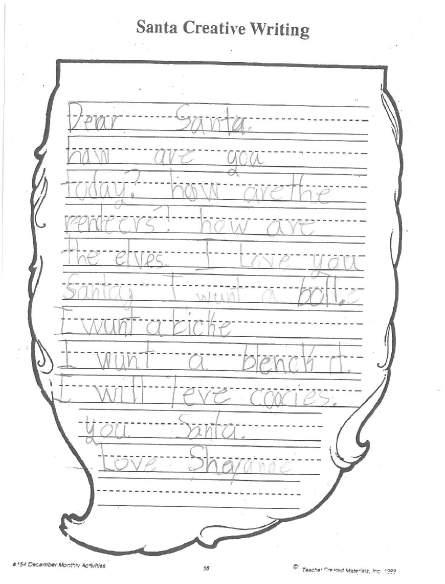 Santa Creative Writing
Dear Santa.
how are you
today? how are the
renteers! how are
the elves. I Love you
Santa, I wunt a boll.
I wunt a bicke
I wunt a blenck it.
I will leve coocies.
you Santa.
Love Sheyanne
#154 December Monthly Activities
© Teacher Created Materials, Inc. 1989